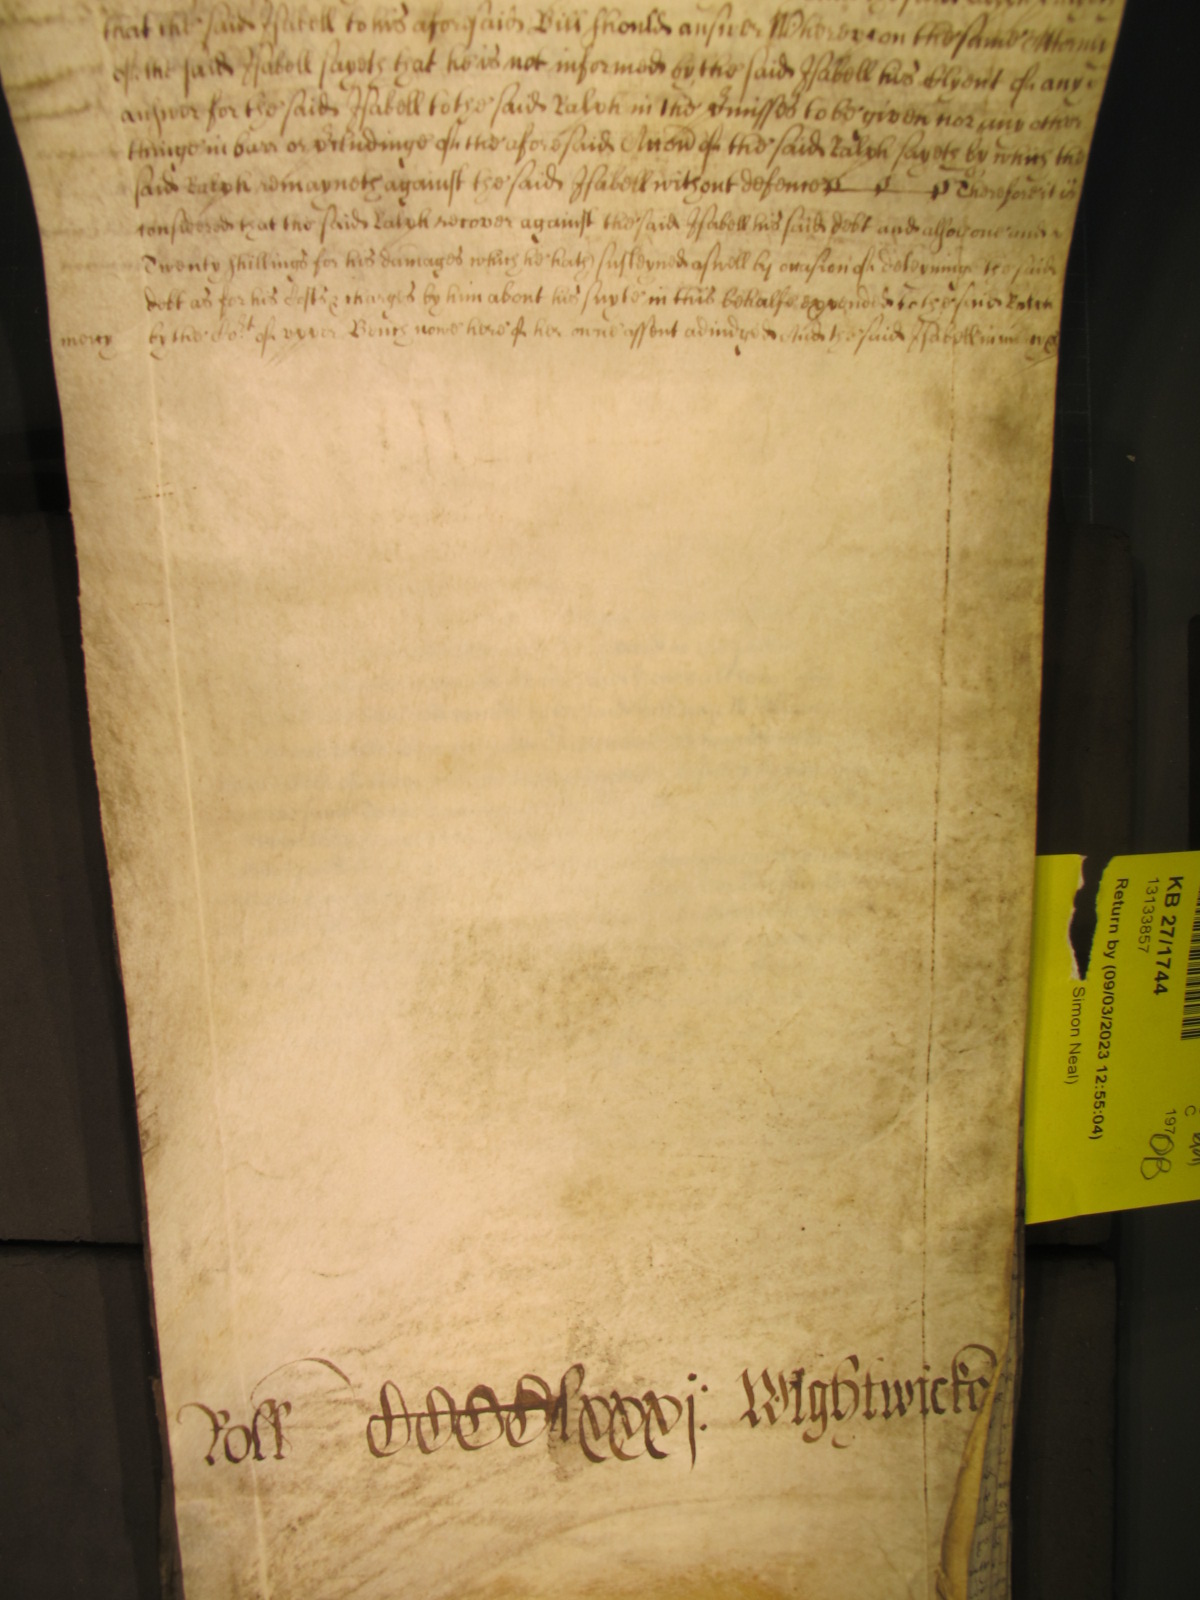 that the said Isabell to his aforesaid Bill should answer Whereupon the same Attorny
of the said Isabell sayeth that he is not informed by the said Isabell his Clyent of any
answer for the said Isabell to the said Ralph in the Pmisses to be given nor any other
thinge in barr or Pcludinge of the aforesaid Accon of the said Ralph sayeth by which the
said Ralph remayneth against the said Isabell without defence Therefore it is
considered that the said Ralph recover against the said Isabell his said debt and also one and
Twenty shillings for his damages which he hath susteyned aswell by occasion of deteyninge the said
debt as for his Costs & charges by him about his suyte in this behalfe expended to the said Ralph
mercy by the Cort of upper Bench nowe here of her owne assent adiudged And the said Isabell in mercy &c
Roll CCCClxxxj: Wightwicke
KB 27/1744
13133857
Return by (09/03/2023 12:55:04)
Simon Neal)
197